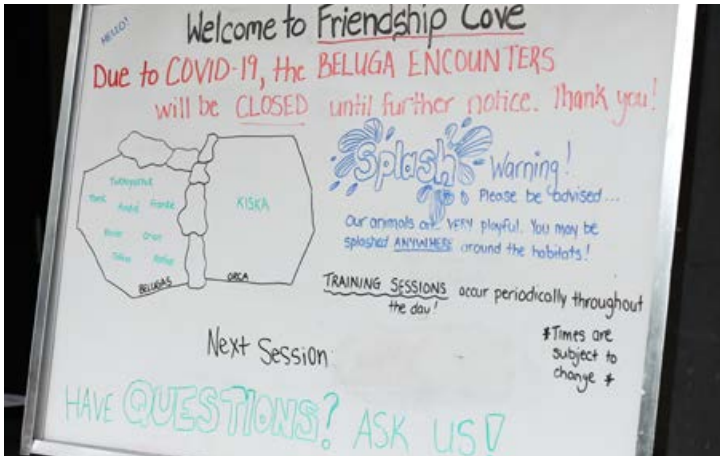 HELLO!
Welcome to Friendship Cove
Due to COVID-19, the BELUGA ENCOUNTERS
will be CLOSED until further notice. Thank you!
Splash Warning!
Please be advised...
Our animals are VERY playful. You may be
splashed ANYWHERE around the habitats!
KISKA
BELUGAS
ORCA
TRAINING SESSIONS occur periodically throughout
the day!
Next Session:
*Times are
subject to
change *
HAVE QUESTIONS? ASK US!